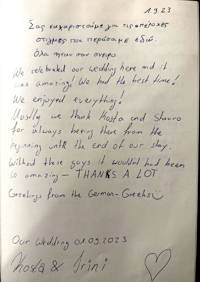 1.9.23
Σας ευχαριστούμε για τις υπέροχες
στιγμές που περάσαμε εδώ.
Όλα ήταν σαν όνειρο
We celebrated our wedding here and it
was amazing! We had the best time!
We enjoyed everything!
Mostly we thank Kosta and Stavro
for always being there from the
beginning until the end of our stay.
Without these guys it wouldn't had been
so amazing - THANKS A LOT
Greetings from the German-Greeks
Our Wedding 01.09.2023
Kosta & Irini